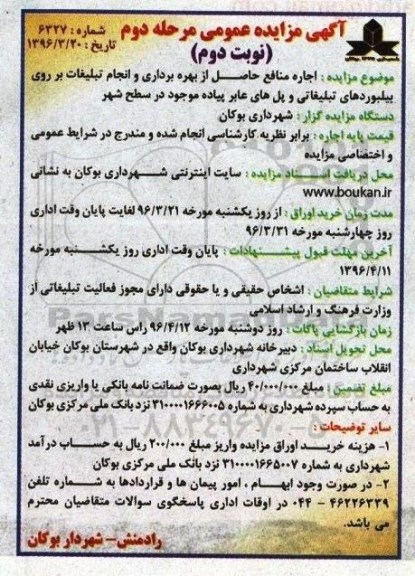 آگهی مزایده عمومی مرحله دوم
(نوبت دوم)
شماره : ۶۳۲۷
تاریخ : ۱۳۹۶/۳/۲۰
موضوع مزایده : اجاره منافع حاصل از بهره برداری و انجام تبلیغات بر روی
بیلبوردهای تبلیغاتی و پل های عابر پیاده موجود در سطح شهر
دستگاه مزایده گزار : شهرداری بوکان
قیمت پایه اجاره : برابر نظریه کارشناسی انجام شده و مندرج در شرایط عمومی
و اختصاصی مزایده
محل دریافت اسناد مزایده : سایت اینترنتی شهرداری بوکان به نشانی
www.boukan.ir
مدت زمان خرید اوراق : از روز یکشنبه مورخه ۹۶/۳/۲۱ لغایت پایان وقت اداری
روز چهارشنبه مورخه ۹۶/۳/۳۱
آخرین مهلت قبول پیشنهادات : پایان وقت اداری روز یکشنبه مورخه
۱۳۹۶/۴/۱۱
شرایط متقاضیان : اشخاص حقیقی و یا حقوقی دارای مجوز فعالیت تبلیغاتی از
وزارت فرهنگ و ارشاد اسلامی
زمان بازگشایی پاکات : روز دوشنبه مورخه ۹۶/۴/۱۲ راس ساعت ۱۳ ظهر
محل تحویل اسناد : دبیرخانه شهرداری بوکان واقع در شهرستان بوکان خیابان
انقلاب ساختمان مرکزی شهرداری
مبلغ تضمین : مبلغ ۴۰/۰۰۰/۰۰۰ ریال بصورت ضمانت نامه بانکی یا واریزی نقدی
به حساب سپرده شهرداری به شماره ۳۱۰۰۰۰۱۶۶۶۰۰۵ نزد بانک ملی مرکزی بوکان
سایر توضیحات :
۱- هزینه خرید اوراق مزایده واریز مبلغ ۲۰۰/۰۰۰ ریال به حساب درآمد
شهرداری به شماره ۳۱۰۰۰۰۱۶۶۵۰۰۷ نزد بانک ملی مرکزی بوکان
۲- در صورت وجود ابهام ، امور پیمان ها و قراردادها به شماره تلفن
۴۶۲۲۶۳۳۹ - ۰۴۴ در اوقات اداری پاسخگوی سوالات متقاضیان محترم
می باشد.
رادمنش - شهردار بوکان
ParsNamadData
۰۲۱-۸۸۳۴۹۶۷۰